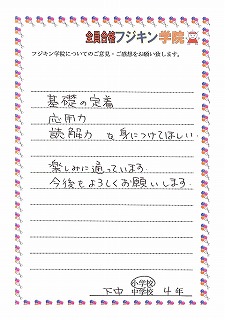 全員合格フジキン学院
フジキン学院についてのご意見・ご感想をお願い致します。
基礎の定着
応用力
読解力 を身につけてほしい.
楽しみに通っています.
今後もよろしくお願いします.
小学校
下中 中学校 4年